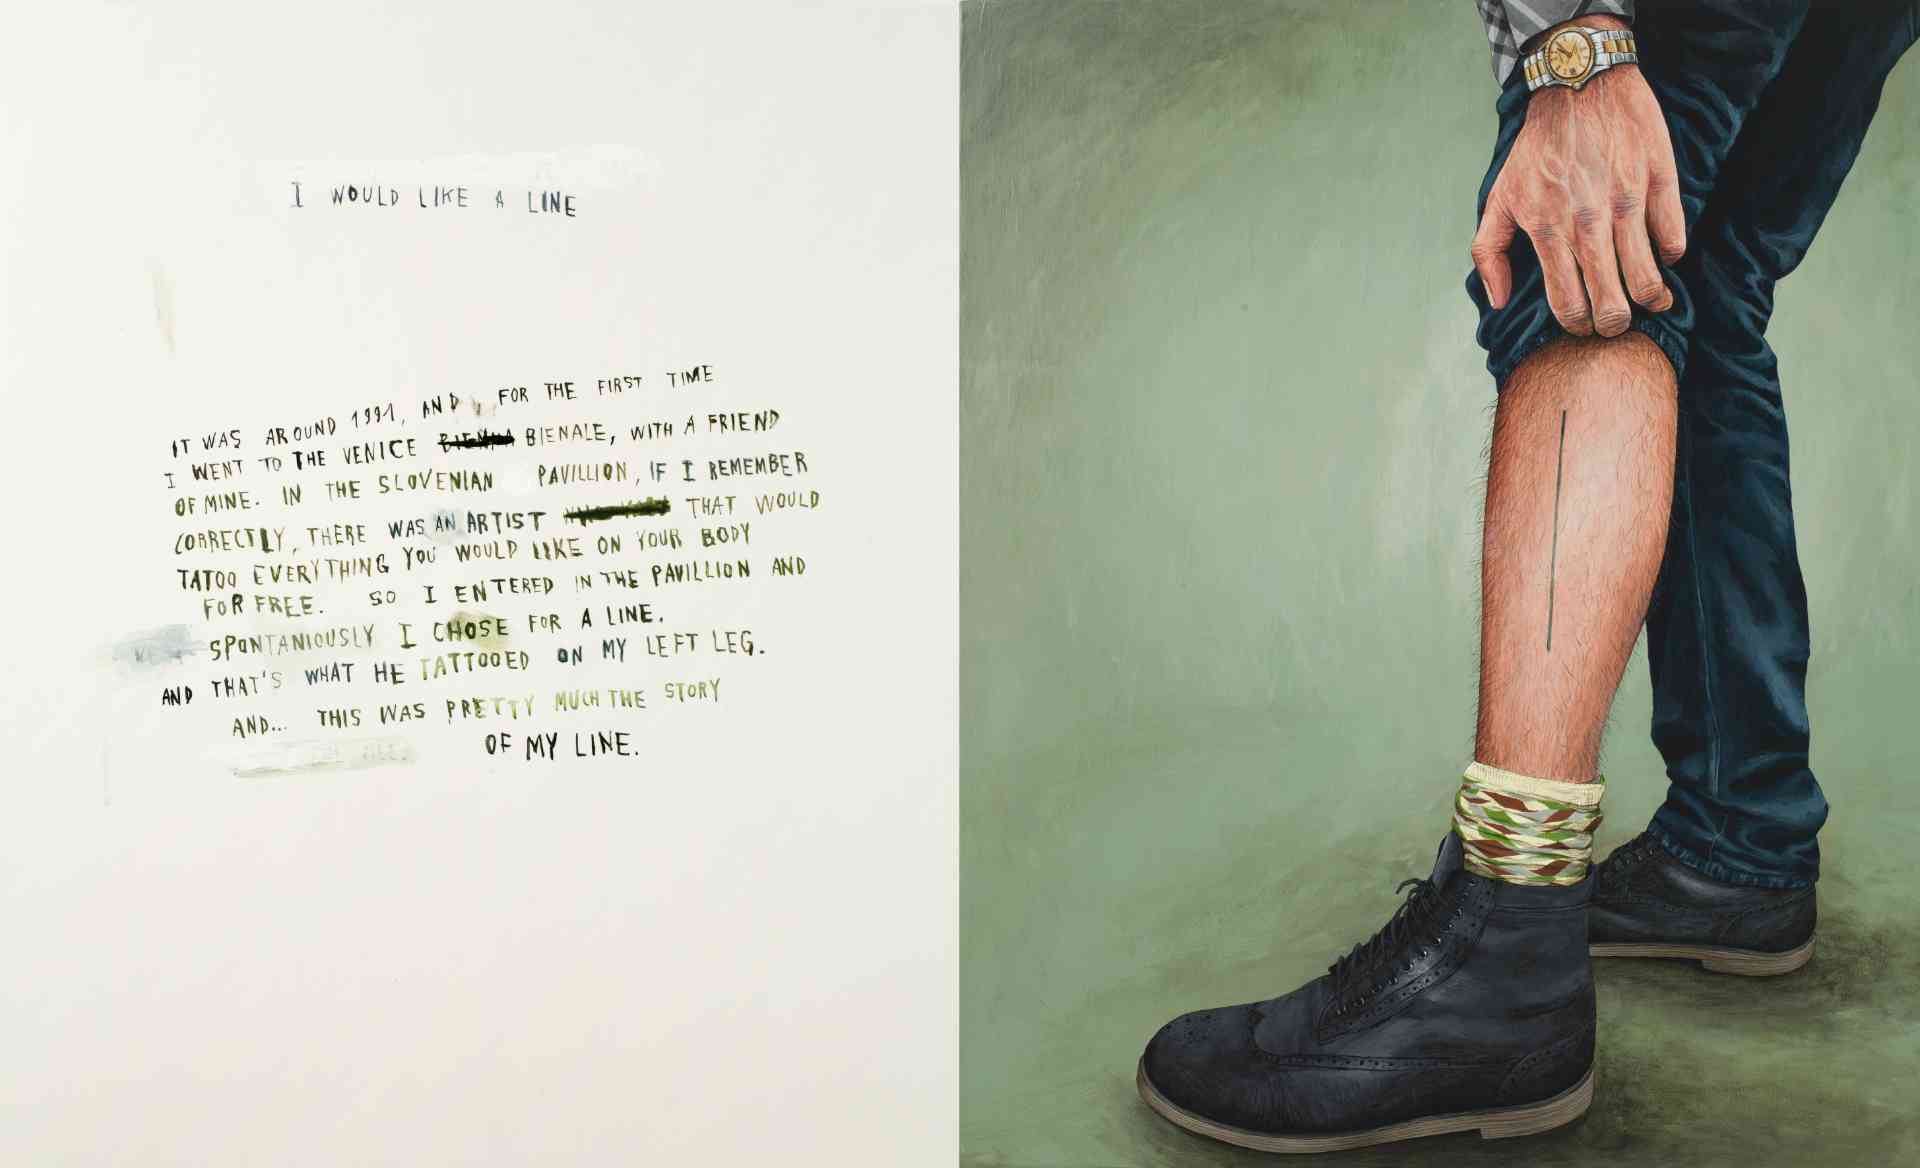 I WOULD LIKE A LINE
IT WAS AROUND 1991, AND, FOR THE FIRST TIME
I WENT TO THE VENICE BIENALE, WITH A FRIEND
OF MINE. IN THE SLOVENIAN PAVILLION, IF I REMEMBER
CORRECTLY, THERE WAS AN ARTIST THAT WOULD
TATOO EVERYTHING YOU WOULD LIKE ON YOUR BODY
FOR FREE. SO I ENTERED IN THE PAVILLION AND
SPONTANIOUSLY I CHOSE FOR A LINE.
AND THAT'S WHAT HE TATTOOED ON MY LEFT LEG.
AND... THIS WAS PRETTY MUCH THE STORY
OF MY LINE.